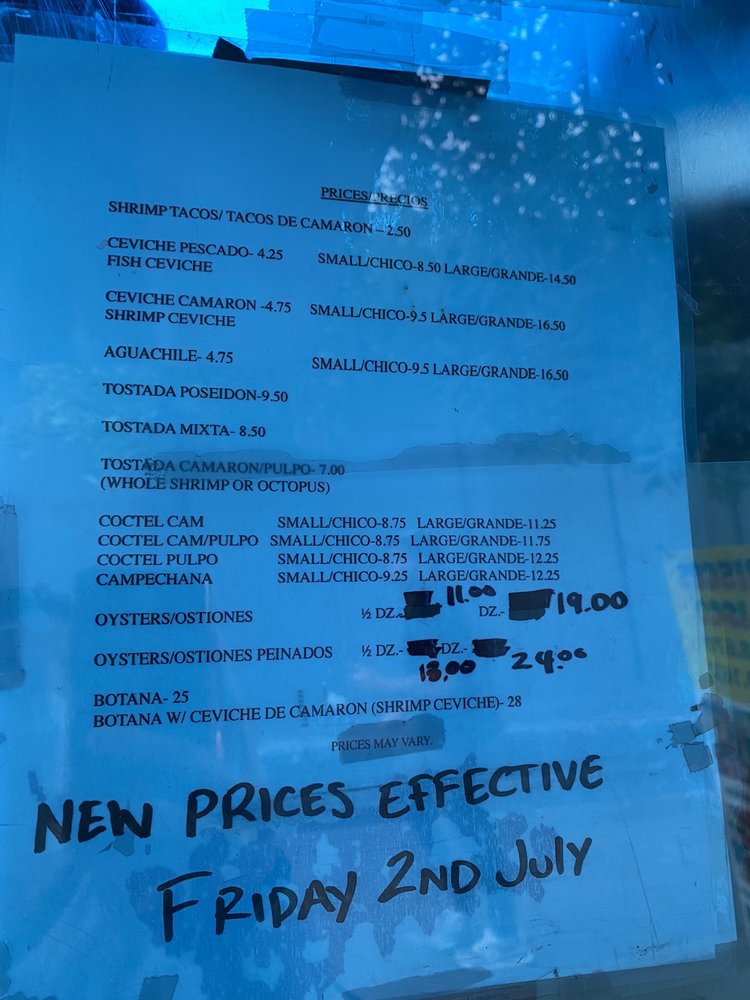 PRICES/PRECIOS
SHRIMP TACOS/ TACOS DE CAMARON – 2.50
CEVICHE PESCADO- 4.25 SMALL/CHICO-8.50 LARGE/GRANDE-14.50
FISH CEVICHE
CEVICHE CAMARON -4.75 SMALL/CHICO-9.5 LARGE/GRANDE-16.50
SHRIMP CEVICHE
AGUACHILE- 4.75 SMALL/CHICO-9.5 LARGE/GRANDE-16.50
TOSTADA POSEIDON-9.50
TOSTADA MIXTA- 8.50
TOSTADA CAMARON/PULPO- 7.00
(WHOLE SHRIMP OR OCTOPUS)
COCTEL CAM SMALL/CHICO-8.75 LARGE/GRANDE-11.25
COCTEL CAM/PULPO SMALL/CHICO-8.75 LARGE/GRANDE-11.75
COCTEL PULPO SMALL/CHICO-8.75 LARGE/GRANDE-12.25
CAMPECHANA SMALL/CHICO-9.25 LARGE/GRANDE-12.25
OYSTERS/OSTIONES ½ DZ.- 11.00 DZ.- 19.00
OYSTERS/OSTIONES PEINADOS ½ DZ.- 13.00 DZ.- 24.00
BOTANA- 25
BOTANA W/ CEVICHE DE CAMARON (SHRIMP CEVICHE)- 28
PRICES MAY VARY.
NEW PRICES EFFECTIVE
FRIDAY 2ND JULY